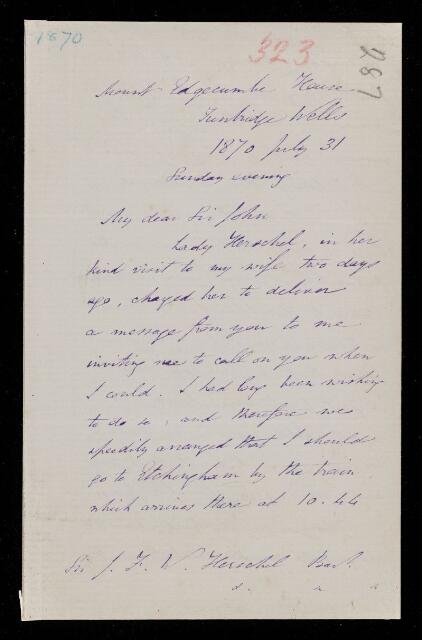 1870
323
287
Mount Edgecumbe House
Tunbridge Wells
1870 July 31
Sunday evening
My dear Sir John
Lady Herschel, in her
kind visit to my wife two days
ago, charged her to deliver
a message from you to me
inviting me to call on you when
I could. I had long been wishing
to do so, and therefore we
speedily arranged that I should
go to Etchingham by the train
which arrives there at 10.44
Sir J. F. W. Herschel Bart.